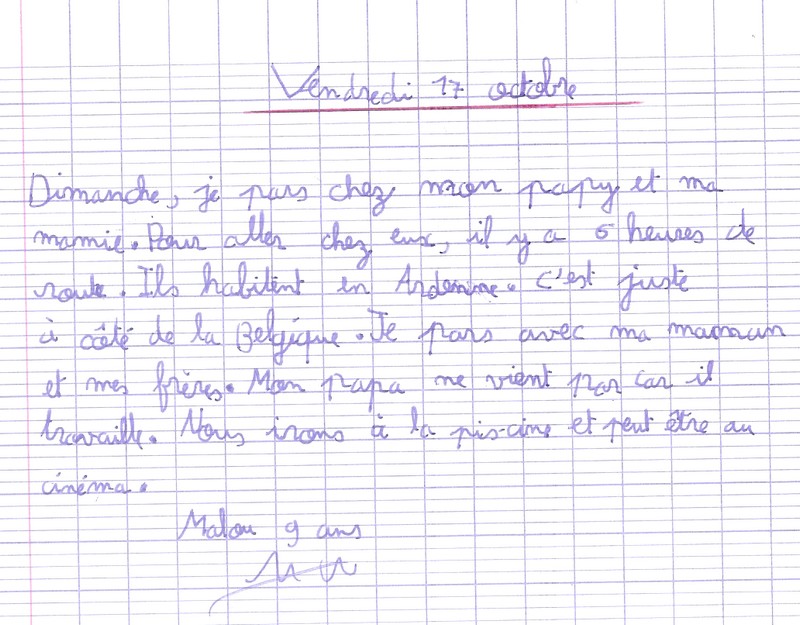 Vendredi 17 octobre
Dimanche, je pars chez mon papy et ma
mamie. Pour aller chez eux, il y a 5 heures de
route. Ils habitent en Ardenne. c'est juste
à côté de la Belgique. Je pars avec ma maman
et mes frères. Mon papa ne vient pas car il
travaille. Nous irons à la pis-cine et peut être au
cinéma.
Malou 9 ans